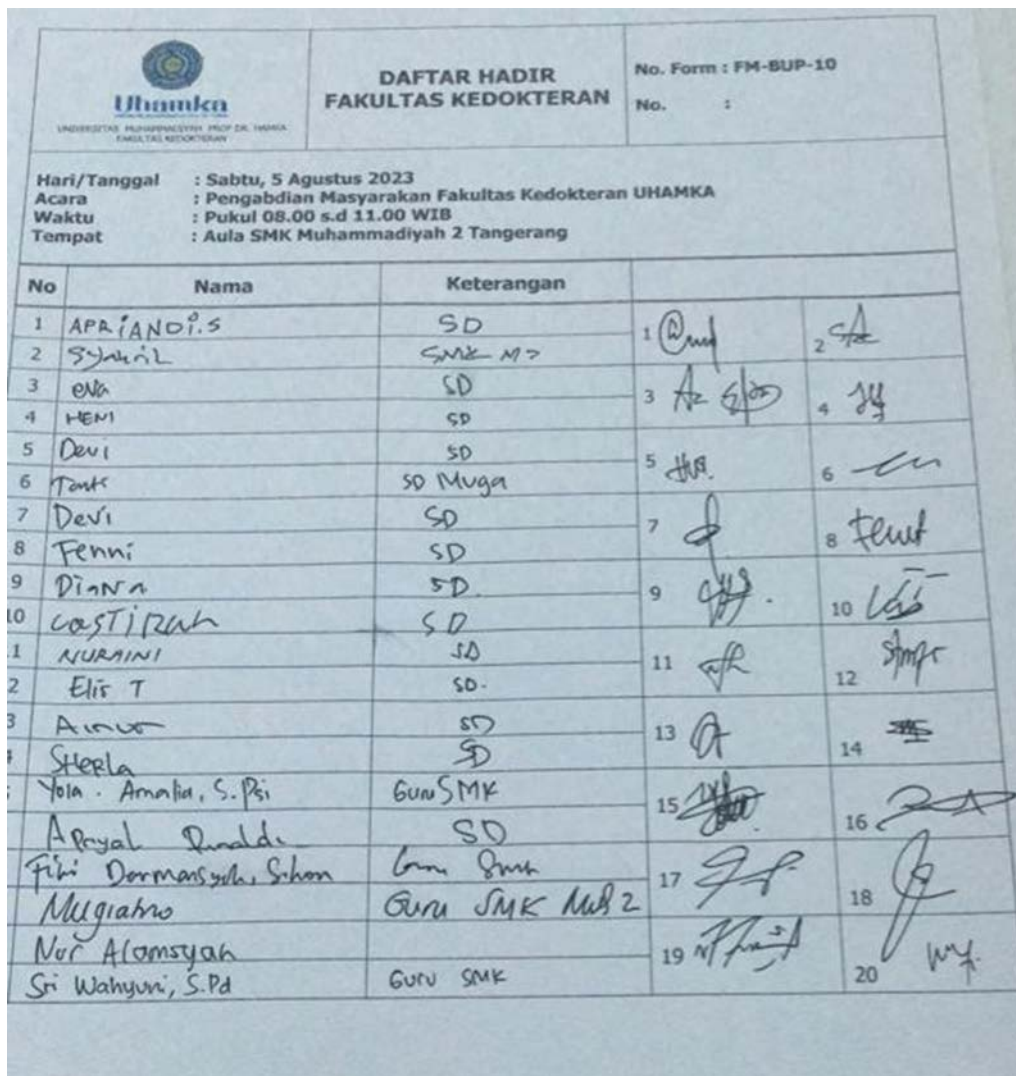 Uhamka
UNIVERSITAS MUHAMMADIYAH PROF DR. HAMKA
FAKULTAS KEDOKTERAN
DAFTAR HADIR
FAKULTAS KEDOKTERAN
No. Form : FM-BUP-10
No. :
Hari/Tanggal : Sabtu, 5 Agustus 2023
Acara : Pengabdian Masyarakan Fakultas Kedokteran UHAMKA
Waktu : Pukul 08.00 s.d 11.00 WIB
Tempat : Aula SMK Muhammadiyah 2 Tangerang
No Nama Keterangan
1 APRiANDi.S SD 1 2
2 SMK M2
3 eva SD 3 4
4 HENI SD
5 Devi SD 5 6
6 SD Muga
7 Devi SD 7 8
8 Fenni SD
9 DiaNa SD. 9 10
10 casTiRah SD
1 NURAINI SD 11 12
2 Elis T SD.
3 SD 13 14
SHerla SD
Yola. Amalia, S.Psi Guru SMK 15 16
SD
17 18
Mugiatno Guru SMK Muh 2
Nur Alamsyah 19 20
Sri Wahyuni, S.Pd GURU SMK